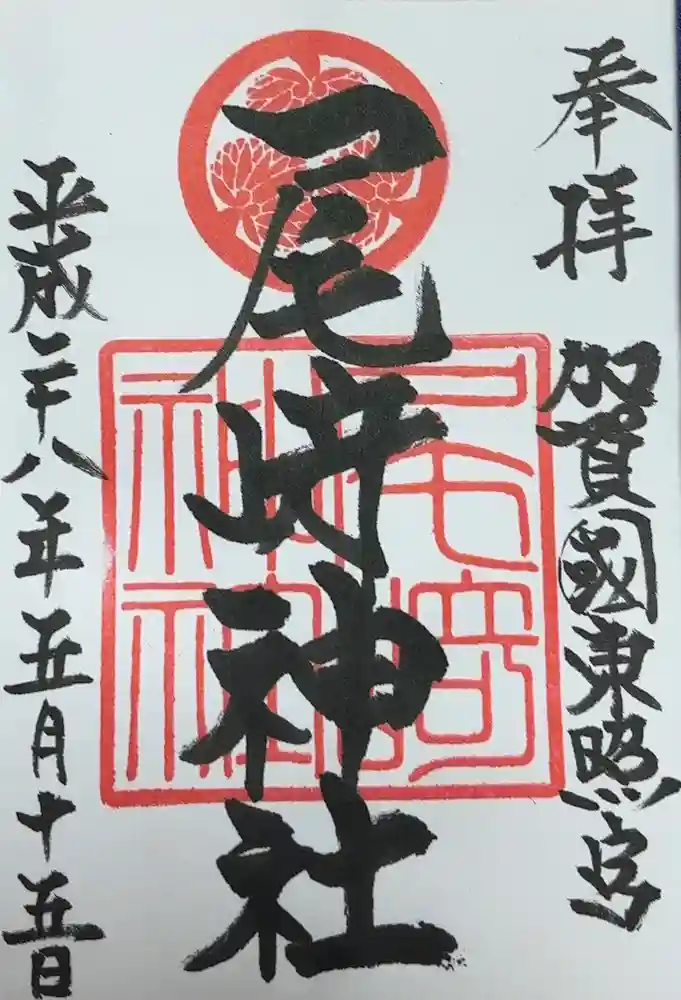 奉拝
加賀國東照宮
尾﨑神社
平成二十八年五月十五日